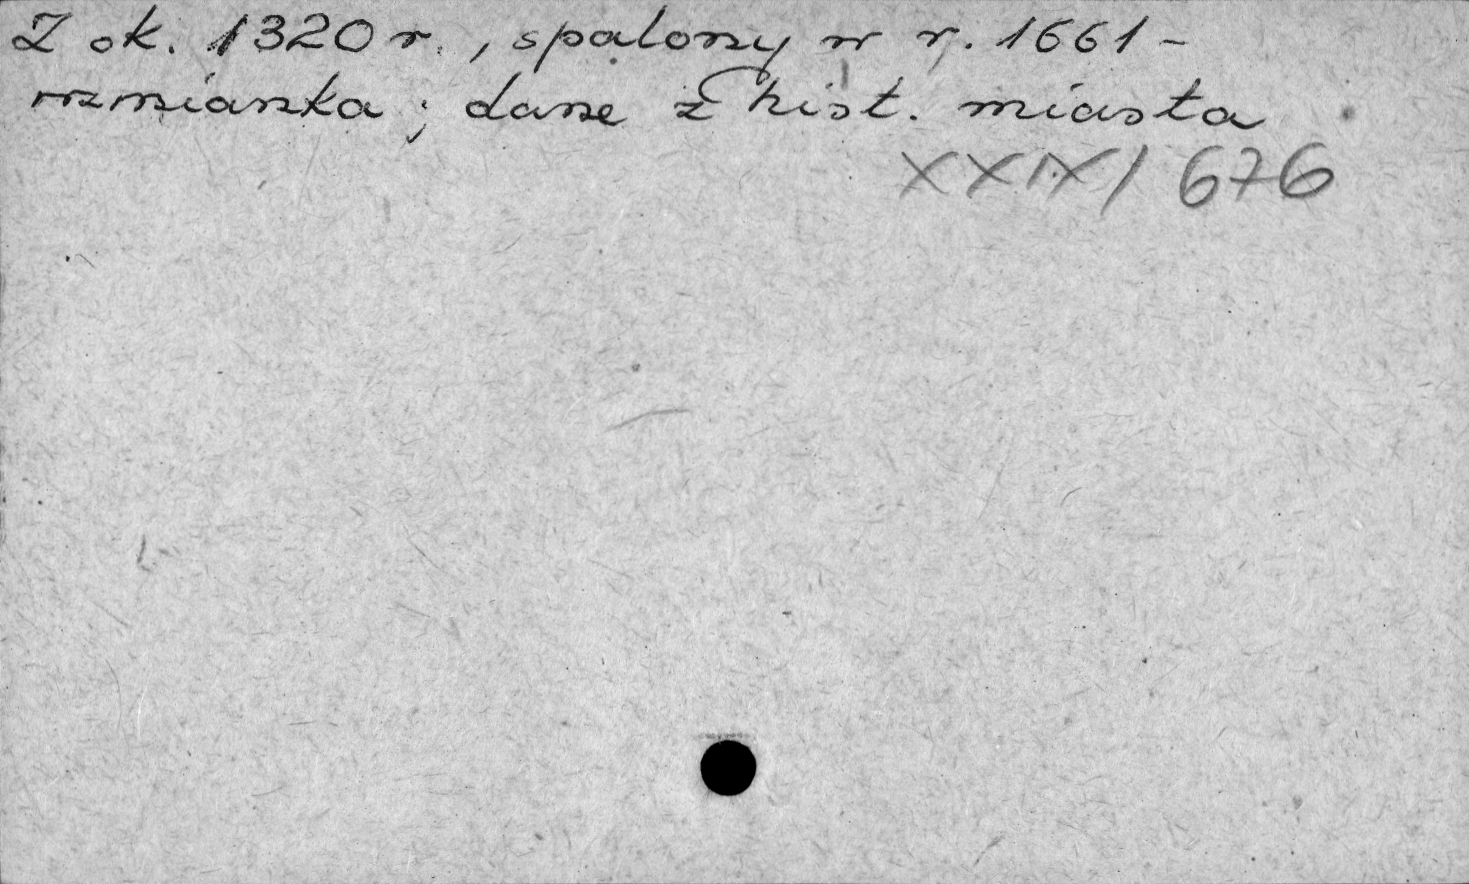 Z ok. 1320 r., spalony w r. 1661 -
wzmianka; dane z hist. miasta
XXIX/ 676